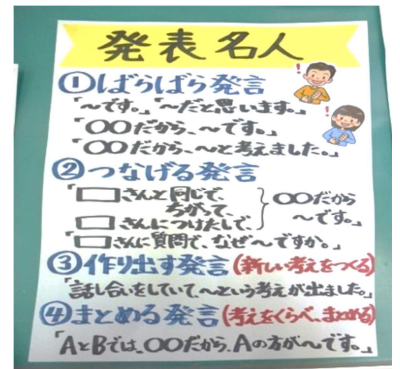 発表名人
①ばらばら発言
「〜です。」「〜だと思います。」
「〇〇だから、〜です。」
「〇〇だから、〜と考えました。」
②つなげる発言
「□さんと同じで、
ちがって、
□さんにつけたしで、
〇〇だから
〜です。」
「□さんに質問で、なぜ〜ですか。」
③作り出す発言(新しい考えをつくる)
「話し合いをしていて、〜という考えが出ました。」
④まとめる発言(考えをくらべ、まとめる)
「AとBでは、〇〇だから、Aの方が〜です。」